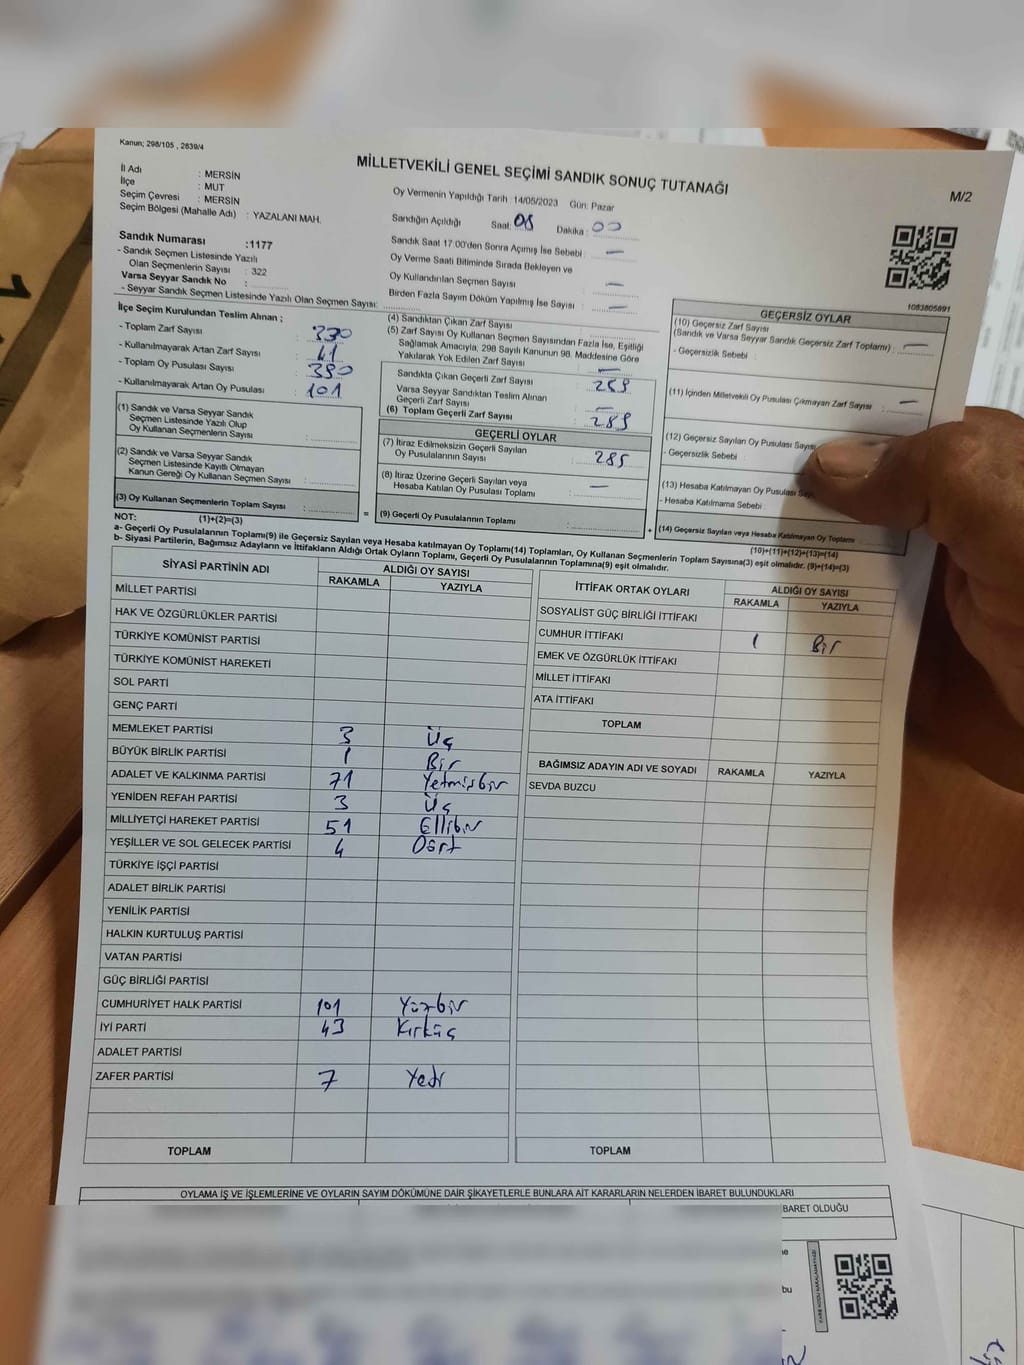 Kanun; 298/105 , 2839/4
MİLLETVEKİLİ GENEL SEÇİMİ SANDIK SONUÇ TUTANAĞI
M/2
İl Adı : MERSİN
İlçe : MUT
Seçim Çevresi : MERSİN
Seçim Bölgesi (Mahalle Adı) : YAZALANI MAH.
Sandık Numarası :1177
- Sandık Seçmen Listesinde Yazılı
Olan Seçmenlerin Sayısı : 322
Varsa Seyyar Sandık No :
- Seyyar Sandık Seçmen Listesinde Yazılı Olan Seçmen Sayısı:
Oy Vermenin Yapıldığı Tarih :14/05/2023 Gün: Pazar
Sandığın Açıldığı Saat: 08 Dakika : 00
Sandık Saat 17 00'den Sonra Açımış İse Sebebi : —
Oy Verme Saati Bitiminde Sırada Bekleyen ve
Oy Kullandırılan Seçmen Sayısı : —
Birden Fazla Sayım Döküm Yapılmış İse Sayısı : —
1083805891
İlçe Seçim Kurulundan Teslim Alınan ;
- Toplam Zarf Sayısı : 330
- Kullanılmayarak Artan Zarf Sayısı : 41
- Toplam Oy Pusulası Sayısı : 390
- Kullanılmayarak Artan Oy Pusulası : 101
(1) Sandık ve Varsa Seyyar Sandık
Seçmen Listesinde Yazılı Olup
Oy Kullanan Seçmenlerin Sayısı :
(2) Sandık ve Varsa Seyyar Sandık
Seçmen Listesinde Kayıtlı Olmayan
Kanun Gereği Oy Kullanan Seçmen Sayısı :
(3) Oy Kullanan Seçmenlerin Toplam Sayısı :
(4) Sandıktan Çıkan Zarf Sayısı :
(5) Zarf Sayısı Oy Kullanan Seçmen Sayısından Fazla İse, Eşitliği
Sağlamak Amacıyla, 298 Sayılı Kanunun 98. Maddesine Göre
Yakılarak Yok Edilen Zarf Sayısı : —
Sandıkta Çıkan Geçerli Zarf Sayısı : 289
Varsa Seyyar Sandıktan Teslim Alınan
Geçerli Zarf Sayısı : —
(6) Toplam Geçerli Zarf Sayısı : 289
GEÇERLİ OYLAR
(7) İtiraz Edilmeksizin Geçerli Sayılan
Oy Pusulalarının Sayısı : 285
(8) İtiraz Üzerine Geçerli Sayılan veya
Hesaba Katılan Oy Pusulası Toplamı : —
=
(9) Geçerli Oy Pusulalarının Toplamı :
+
GEÇERSİZ OYLAR
(10) Geçersiz Zarf Sayısı
(Sandık ve Varsa Seyyar Sandık Geçersiz Zarf Toplamı) : —
- Geçersizlik Sebebi :
(11) İçinden Milletvekili Oy Pusulası Çıkmayan Zarf Sayısı : —
(12) Geçersiz Sayılan Oy Pusulası Sayısı
- Geçersizlik Sebebi :
(13) Hesaba Katılmayan Oy Pusulası
- Hesaba Katılmama Sebebi :
(14) Geçersiz Sayılan veya Hesaba Katılmayan Oy Toplamı
NOT: (1)+(2)=(3)
(10)+(11)+(12)+(13)=(14)
a- Geçerli Oy Pusulalarının Toplamı(9) ile Geçersiz Sayılan veya Hesaba katılmayan Oy Toplamı(14) Toplamları, Oy Kullanan Seçmenlerin Toplam Sayısına(3) eşit olmalıdır. (9)+(14)=(3)
b- Siyasi Partilerin, Bağımsız Adayların ve İttifakların Aldığı Ortak Oyların Toplamı, Geçerli Oy Pusulalarının Toplamına(9) eşit olmalıdır.
SİYASİ PARTİNİN ADI ALDIĞI OY SAYISI
RAKAMLA YAZIYLA
MİLLET PARTİSİ
HAK VE ÖZGÜRLÜKLER PARTİSİ
TÜRKİYE KOMÜNİST PARTİSİ
TÜRKİYE KOMÜNİST HAREKETİ
SOL PARTİ
GENÇ PARTİ
MEMLEKET PARTİSİ 3 Üç
BÜYÜK BİRLİK PARTİSİ 1 Bir
ADALET VE KALKINMA PARTİSİ 71 Yetmişbir
YENİDEN REFAH PARTİSİ 3 Üç
MİLLİYETÇİ HAREKET PARTİSİ 51 Ellibir
YEŞİLLER VE SOL GELECEK PARTİSİ 4 Dört
TÜRKİYE İŞÇİ PARTİSİ
ADALET BİRLİK PARTİSİ
YENİLİK PARTİSİ
HALKIN KURTULUŞ PARTİSİ
VATAN PARTİSİ
GÜÇ BİRLİĞİ PARTİSİ
CUMHURİYET HALK PARTİSİ 101 Yüzbir
İYİ PARTİ 43 Kırküç
ADALET PARTİSİ
ZAFER PARTİSİ 7 Yedi
TOPLAM
İTTİFAK ORTAK OYLARI ALDIĞI OY SAYISI
RAKAMLA YAZIYLA
SOSYALİST GÜÇ BİRLİĞİ İTTİFAKI
CUMHUR İTTİFAKI 1 Bir
EMEK VE ÖZGÜRLÜK İTTİFAKI
MİLLET İTTİFAKI
ATA İTTİFAKI
TOPLAM
BAĞIMSIZ ADAYIN ADI VE SOYADI RAKAMLA YAZIYLA
SEVDA BUZCU
TOPLAM
OYLAMA İŞ VE İŞLEMLERİNE VE OYLARIN SAYIM DÖKÜMÜNE DAİR ŞİKAYETLERLE BUNLARA AİT KARARLARIN NELERDEN İBARET BULUNDUKLARI
BARET OLDUĞU
bu